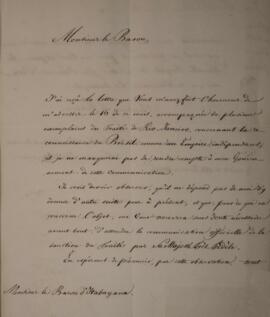 Monsieur le Baron,
J'ai reçu la lettre que Vous m'avez fait l'honneur de
m'adresser le 16 de ce mois, accompagnée de plusieurs
exemplaires du Traité de Rio Janeiro, concernant la
reconnaissance du Brésil comme un Empire indépendant,
et je ne manquerai pas de rendre compte à mon Gouver-
nement de cette communication.
Je crois devoir observer, qu'il ne dépend pas de moi d'y
donner d'autre suite pour à présent, et que, pour ce qui en
concerne l'objet, ma Cour
avant tout d'attendre la communication officielle de la
sanction du Traité par Sa Majesté très Fidèle.
En espérant de prévenir, par cette observation tout
Monsieur le Baron d'Itabayana.